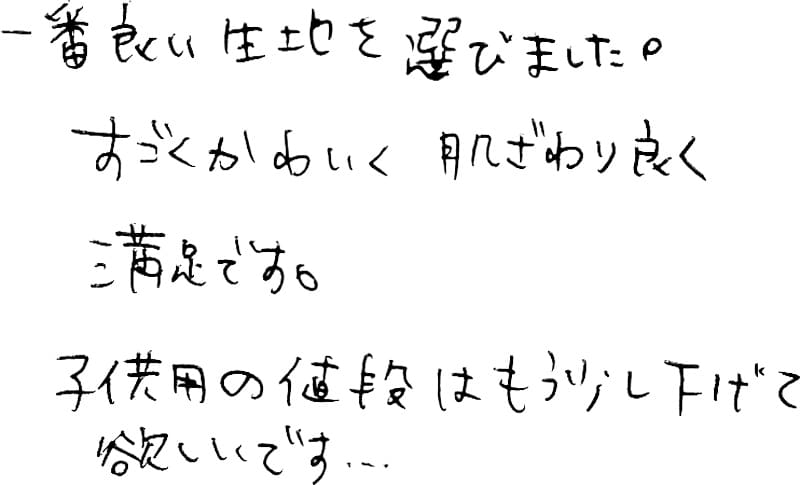 一番良い生地を選びました。
すごくかわいく 肌ざわり良く
満足です。
子供用の値段はもう少し下げて
欲しいです…